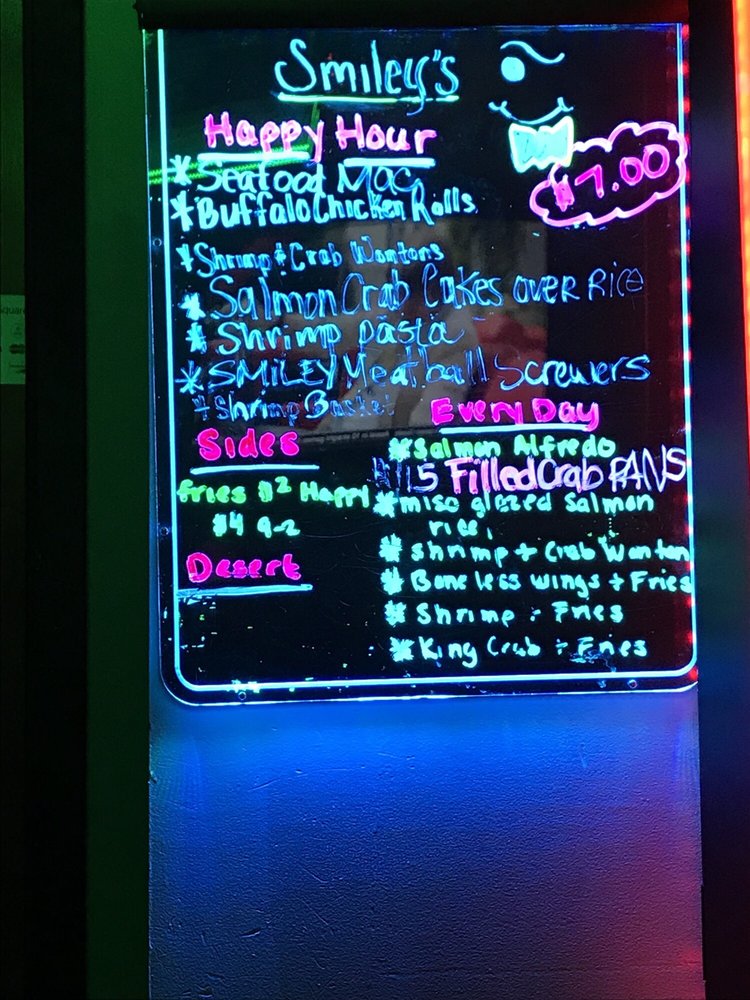 Smiley's
Happy Hour
$7.00
* Seafood Mac
* Buffalo Chicken Rolls
* Shrimp & Crab Wontons
* Salmon Crab Cakes over Rice
* Shrimp pasta
* SMiLEY Meatball Screwers
* Shrimp Basket
Sides
Fries $2 Happy
$4 9-2
Desert
Every Day
* Salmon Alfredo
$15 Filled Crab PANS
* misc glezed Salmon
rice,
* Shrimp + Crab Wonton
* Boneless wings + Fries
* Shrimp + Fries
* King Crab + Fries